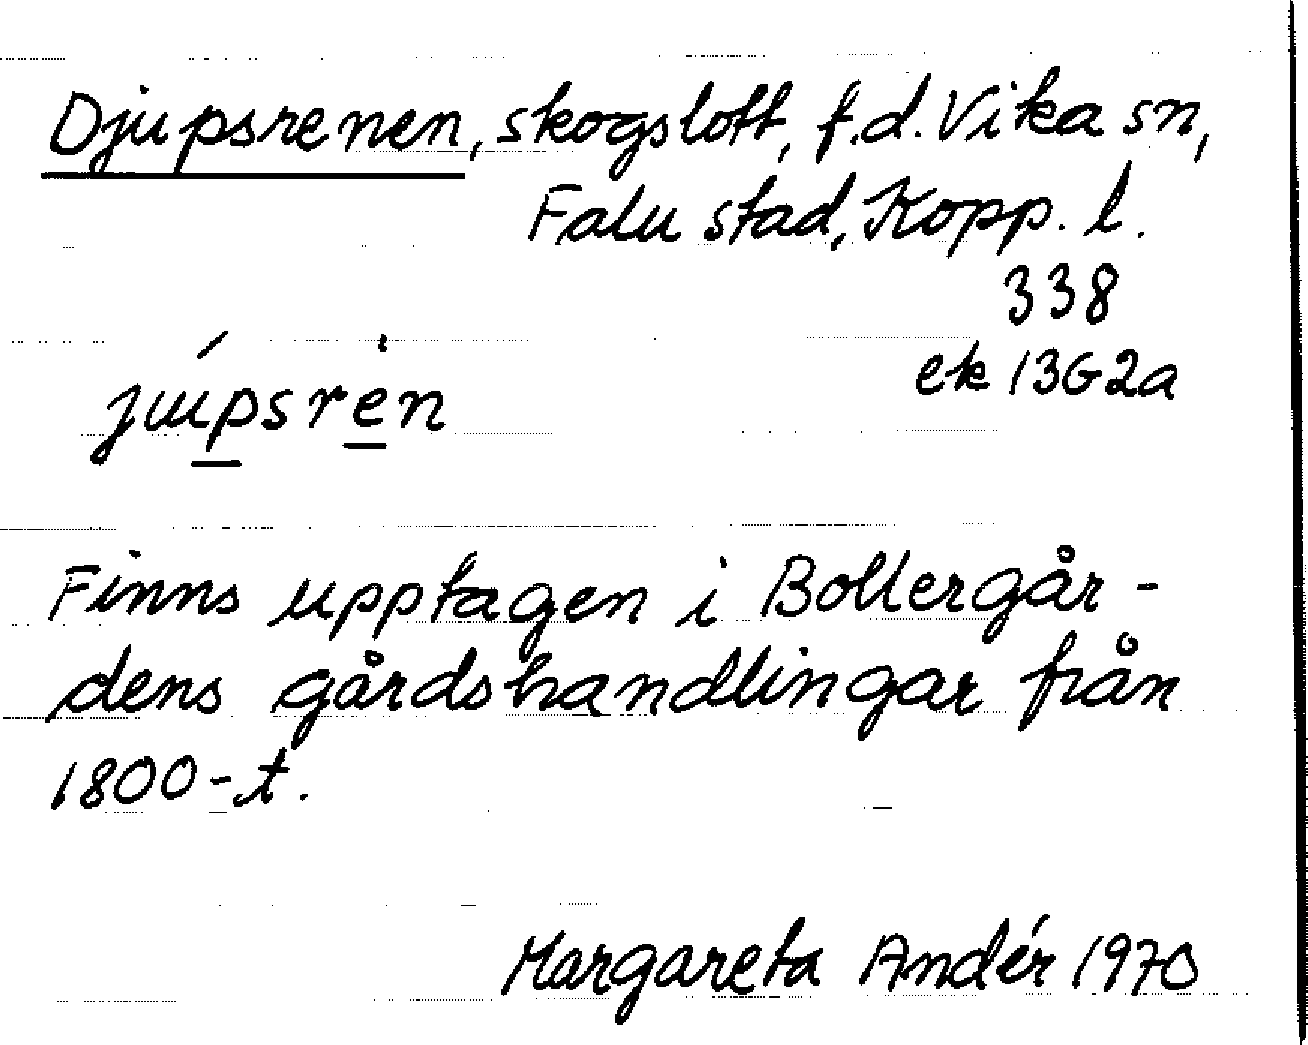 Djupsrenen, skogslott, f.d. Vika sn,
Falu stad, Kopp. l.
338
ek 13G2a
júpsrèn
Finns upptagen i Bollergår-
dens gårdshandlingar från
1800-t.
Margareta Andér 1970